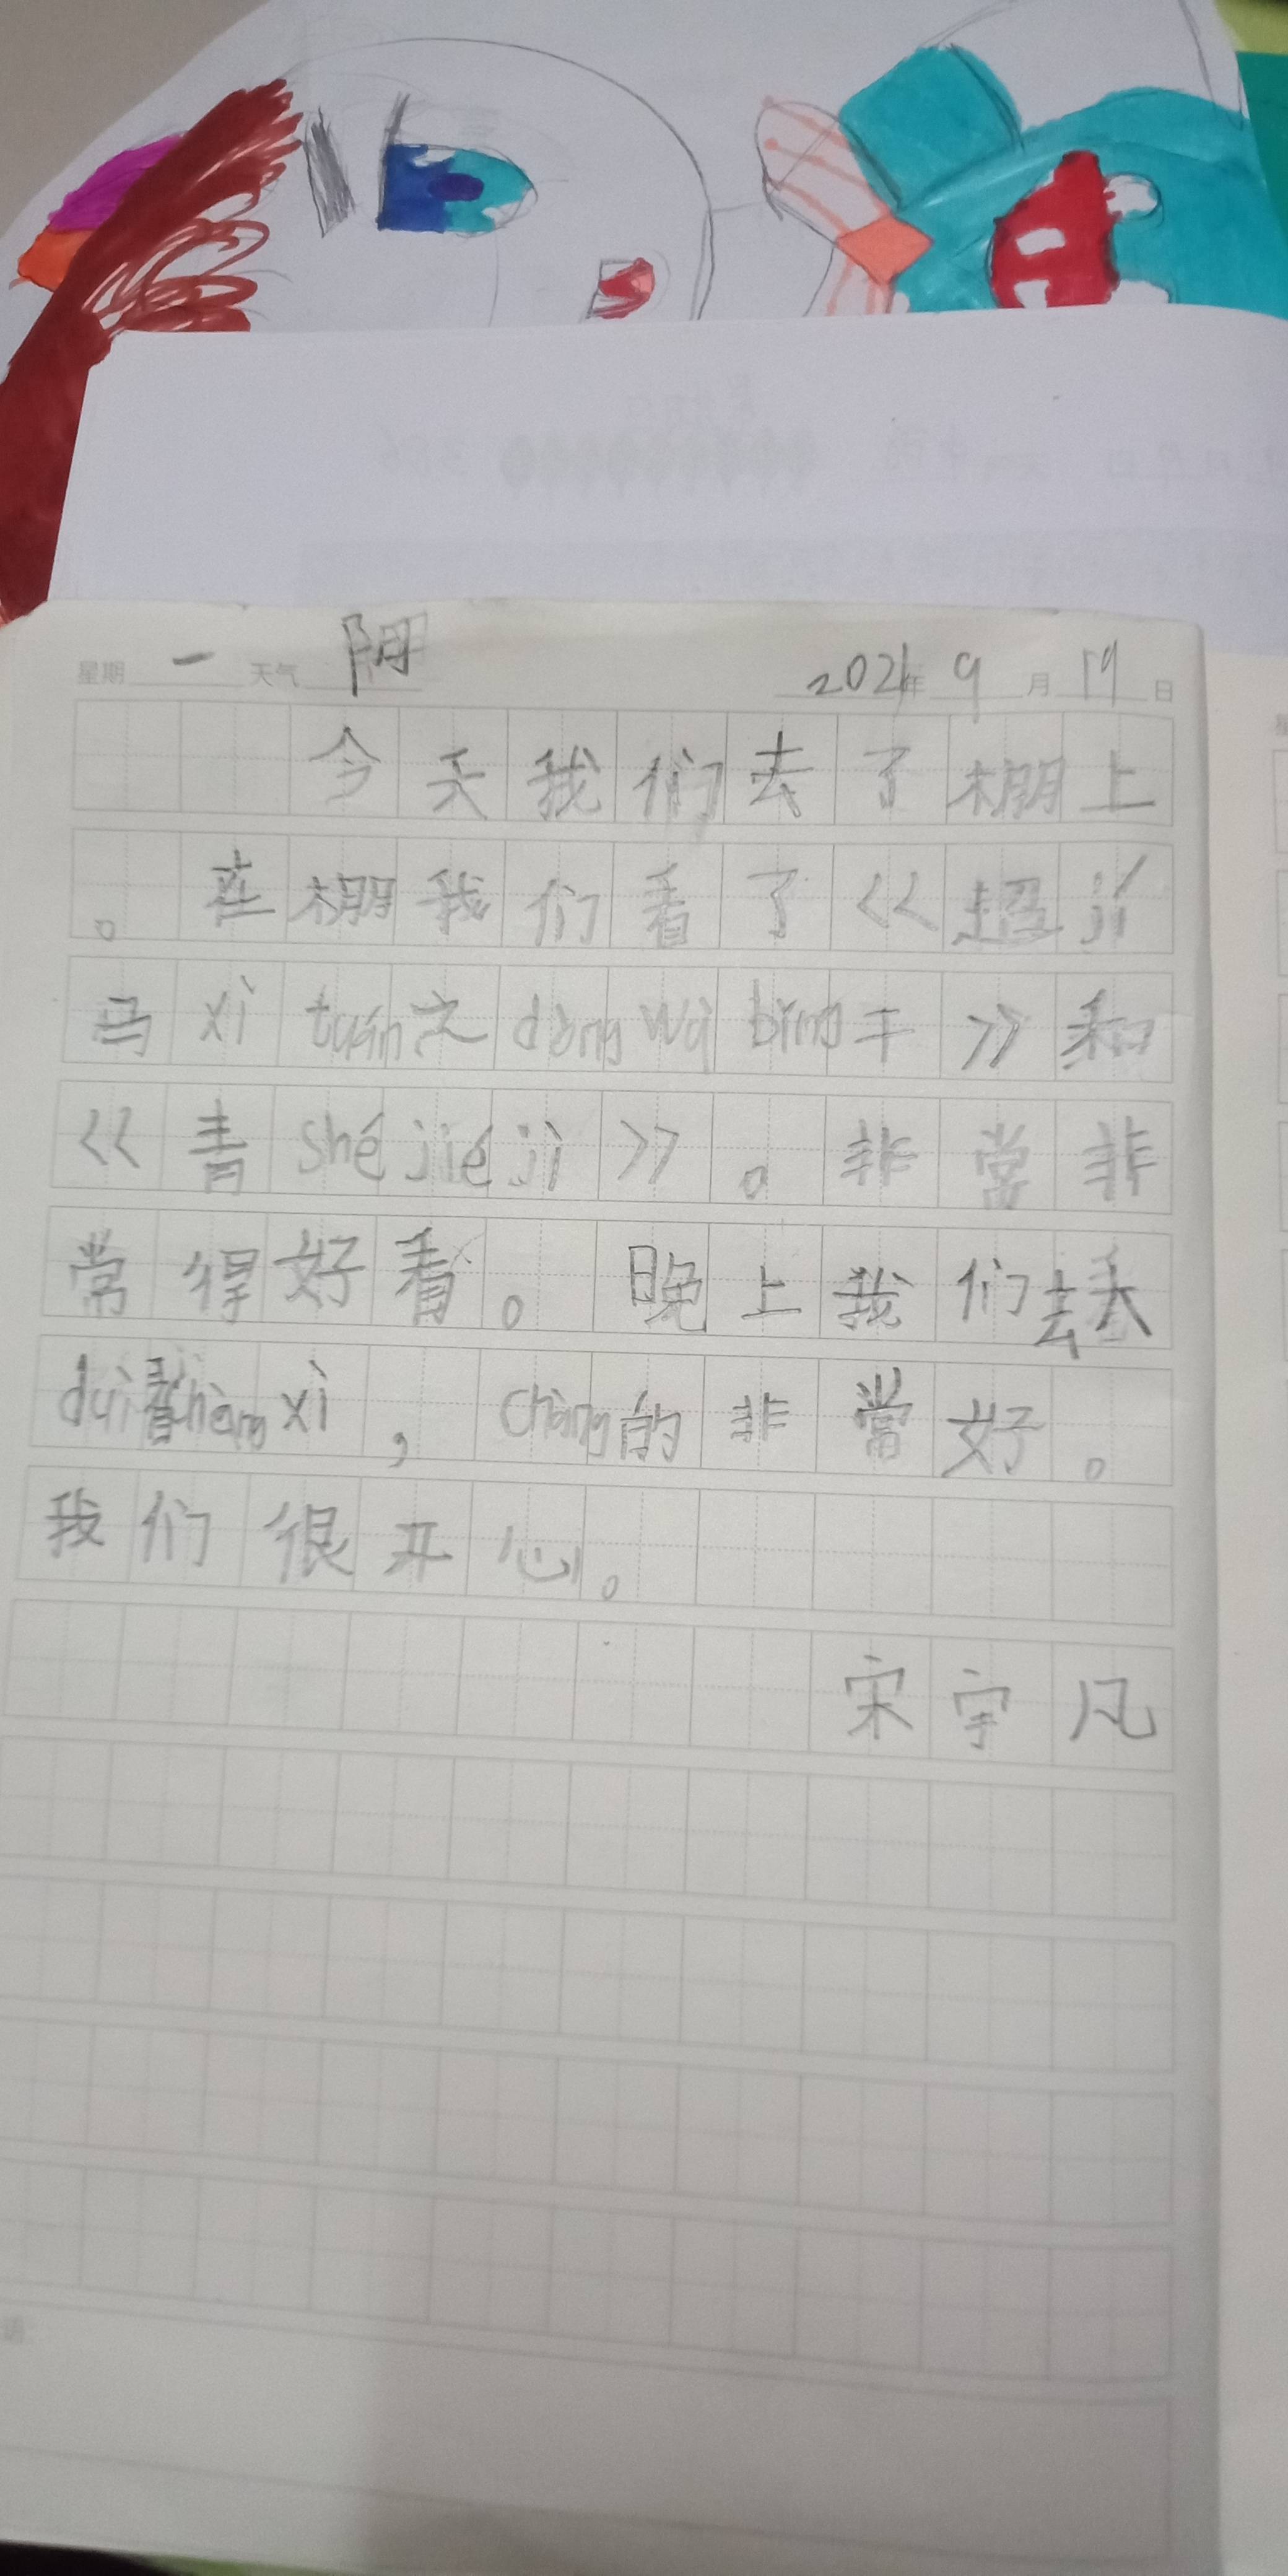 星期 一 天气 阴 2021年 9 月 19 日
今天我们去了棚上
。在棚我们看了《超jí
马xì tuán之dòng wù bǐng干》和
《青shé jié jì》。非常非
常得好看。晚上我们去看
duì chàng xì，chàng的非常好。
我们很开心。
宋宇凡